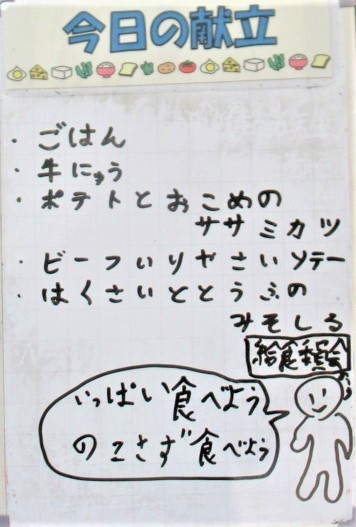 今日の献立
・ごはん
・牛にゅう
・ポテトとおこめの
ササミカツ
・ビーフいりやさいソテー
・はくさいととうふの
みそしる
給食委員会
いっぱい食べよう
のこさず食べよう